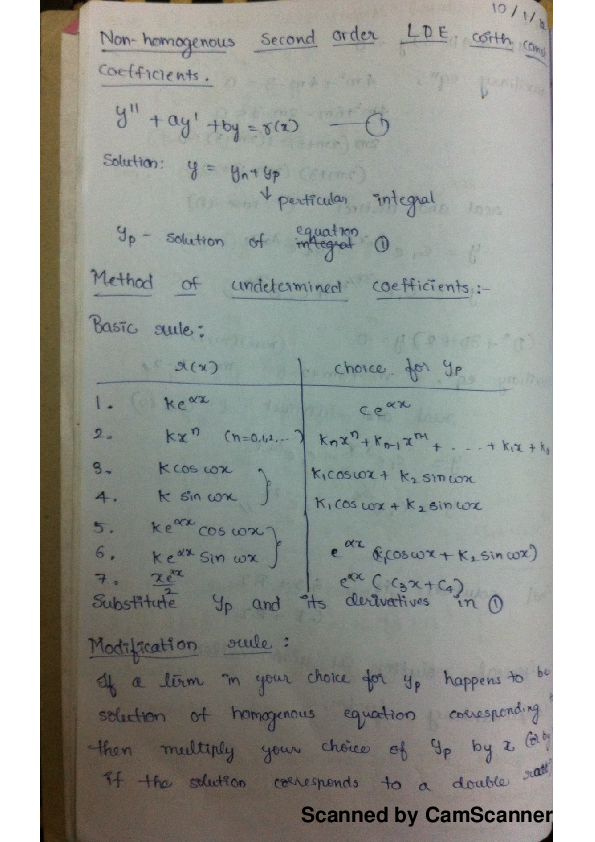 10/1/
Non-homogenous Second order LDE with
coefficients.
y'' + ay' + by = r(x) — ①
Solution: y = yh + yp
↓ particular integral
equation
yp - solution of integral ①
Method of undetermined coefficients:-
Basic rule:
r(x) choice for yp
1. ke^αx ce^αx
2. kx^n (n=0,1,...) knx^n + kn-1x^n-1 + .... + k1x + k0
3. k cos ωx k1 cos ωx + k2 sin ωx
4. k sin ωx k1 cos ωx + k2 sin ωx
5. ke^αx cos ωx
6. ke^αx sin ωx e^αx (k1 cos ωx + k2 sin ωx)
7. xe^αx/2 e^αx (c3x + c4)
Substitute yp and its derivatives in ①
Modification rule:
If a term in your choice for yp happens to be
solution of homogenous equation corresponding
then multiply your choice of yp by x (or by
if the solution corresponds to a double root)
Scanned by CamScanner